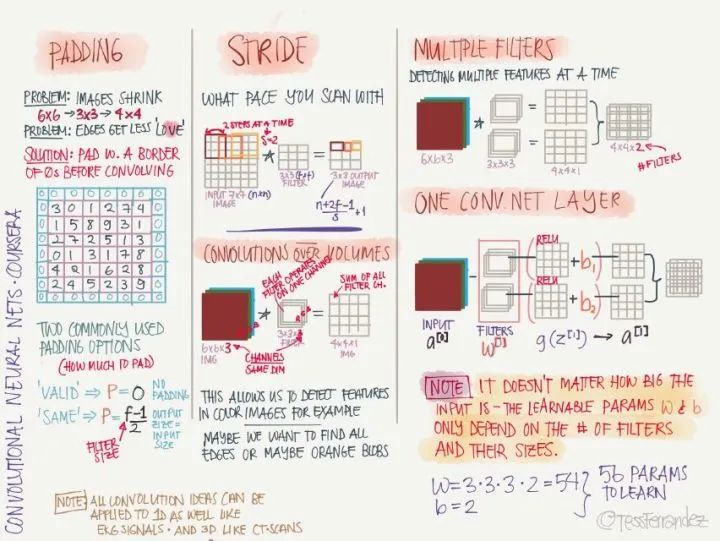 PADDING
PROBLEM: IMAGES SHRINK
6x6 → 3x3 → 4x4
PROBLEM: EDGES GET LESS 'LOVE'
SOLUTION: PAD W. A BORDER
OF 0s BEFORE CONVOLVING
0 0 0 0 0 0 0 0
0 3 0 1 2 7 4 0
0 1 5 8 9 3 1 0
0 2 7 2 5 1 3 0
0 0 1 3 1 7 8 0
0 4 2 1 6 2 8 0
0 2 4 5 2 3 9 0
0 0 0 0 0 0 0 0
TWO COMMONLY USED
PADDING OPTIONS
(HOW MUCH TO PAD)
'VALID' ⇒ P = 0 NO PADDING
'SAME' ⇒ P = f-1/2 OUTPUT SIZE = INPUT SIZE
FILTER SIZE
STRIDE
WHAT PACE YOU SCAN WITH
2 STEPS AT A TIME
S=2
* =
INPUT 7x7 (nxn)
IMAGE
3x3 (fxf)
FILTER
3x3 OUTPUT
IMAGE
n+2f-1/s +1
CONVOLUTIONS OVER VOLUMES
EACH
FILTER OPERATES
ON ONE CHANNEL
SUM OF ALL
FILTER CH.
* =
6x6x3
IMG
3x3x3
FILTER
4x4x1
IMG
CHANNELS
SAME DIM
THIS ALLOWS US TO DETECT FEATURES
IN COLOR IMAGES FOR EXAMPLE
MAYBE WE WANT TO FIND ALL
EDGES OR MAYBE ORANGE BLOBS
MULTIPLE FILTERS
DETECTING MULTIPLE FEATURES AT A TIME
* =
=
6x6x3
3x3x3
4x4x1
4x4x2
#FILTERS
ONE CONV.NET LAYER
RELU
( + b1)
RELU
( + b2)
INPUT
a[0]
FILTERS
W[1]
g(z[1]) → a[1]
NOTE IT DOESN'T MATTER HOW BIG THE
INPUT IS - THE LEARNABLE PARAMS W & b
ONLY DEPEND ON THE # OF FILTERS
AND THEIR SIZES.
W = 3·3·3·2 = 54
b = 2
} 56 PARAMS
TO LEARN
NOTE: ALL CONVOLUTION IDEAS CAN BE
APPLIED TO 1D AS WELL LIKE
EKG SIGNALS · AND 3D LIKE CT-SCANS
CONVOLUTIONAL NEURAL NETS · COURSERA
@TessFerrandez